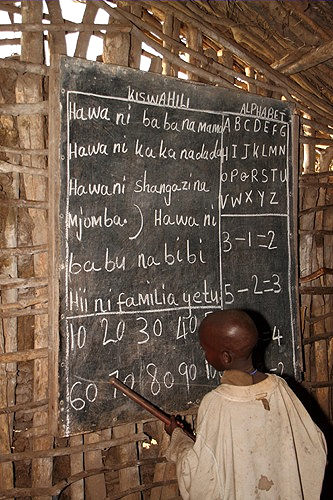 KISWAHILI
Hawa ni baba na mama
Hawa ni kaka na dada
Hawa ni shangazi na
Mjomba. ) Hawa ni
babu na bibi
Hii ni familia yetu.
ALPHABET
ABCDEFG
HIJKLMN
OPQRSTU
VWXYZ
3-1=2
5-2=3
10 20 30 40
60 70 80 90
4